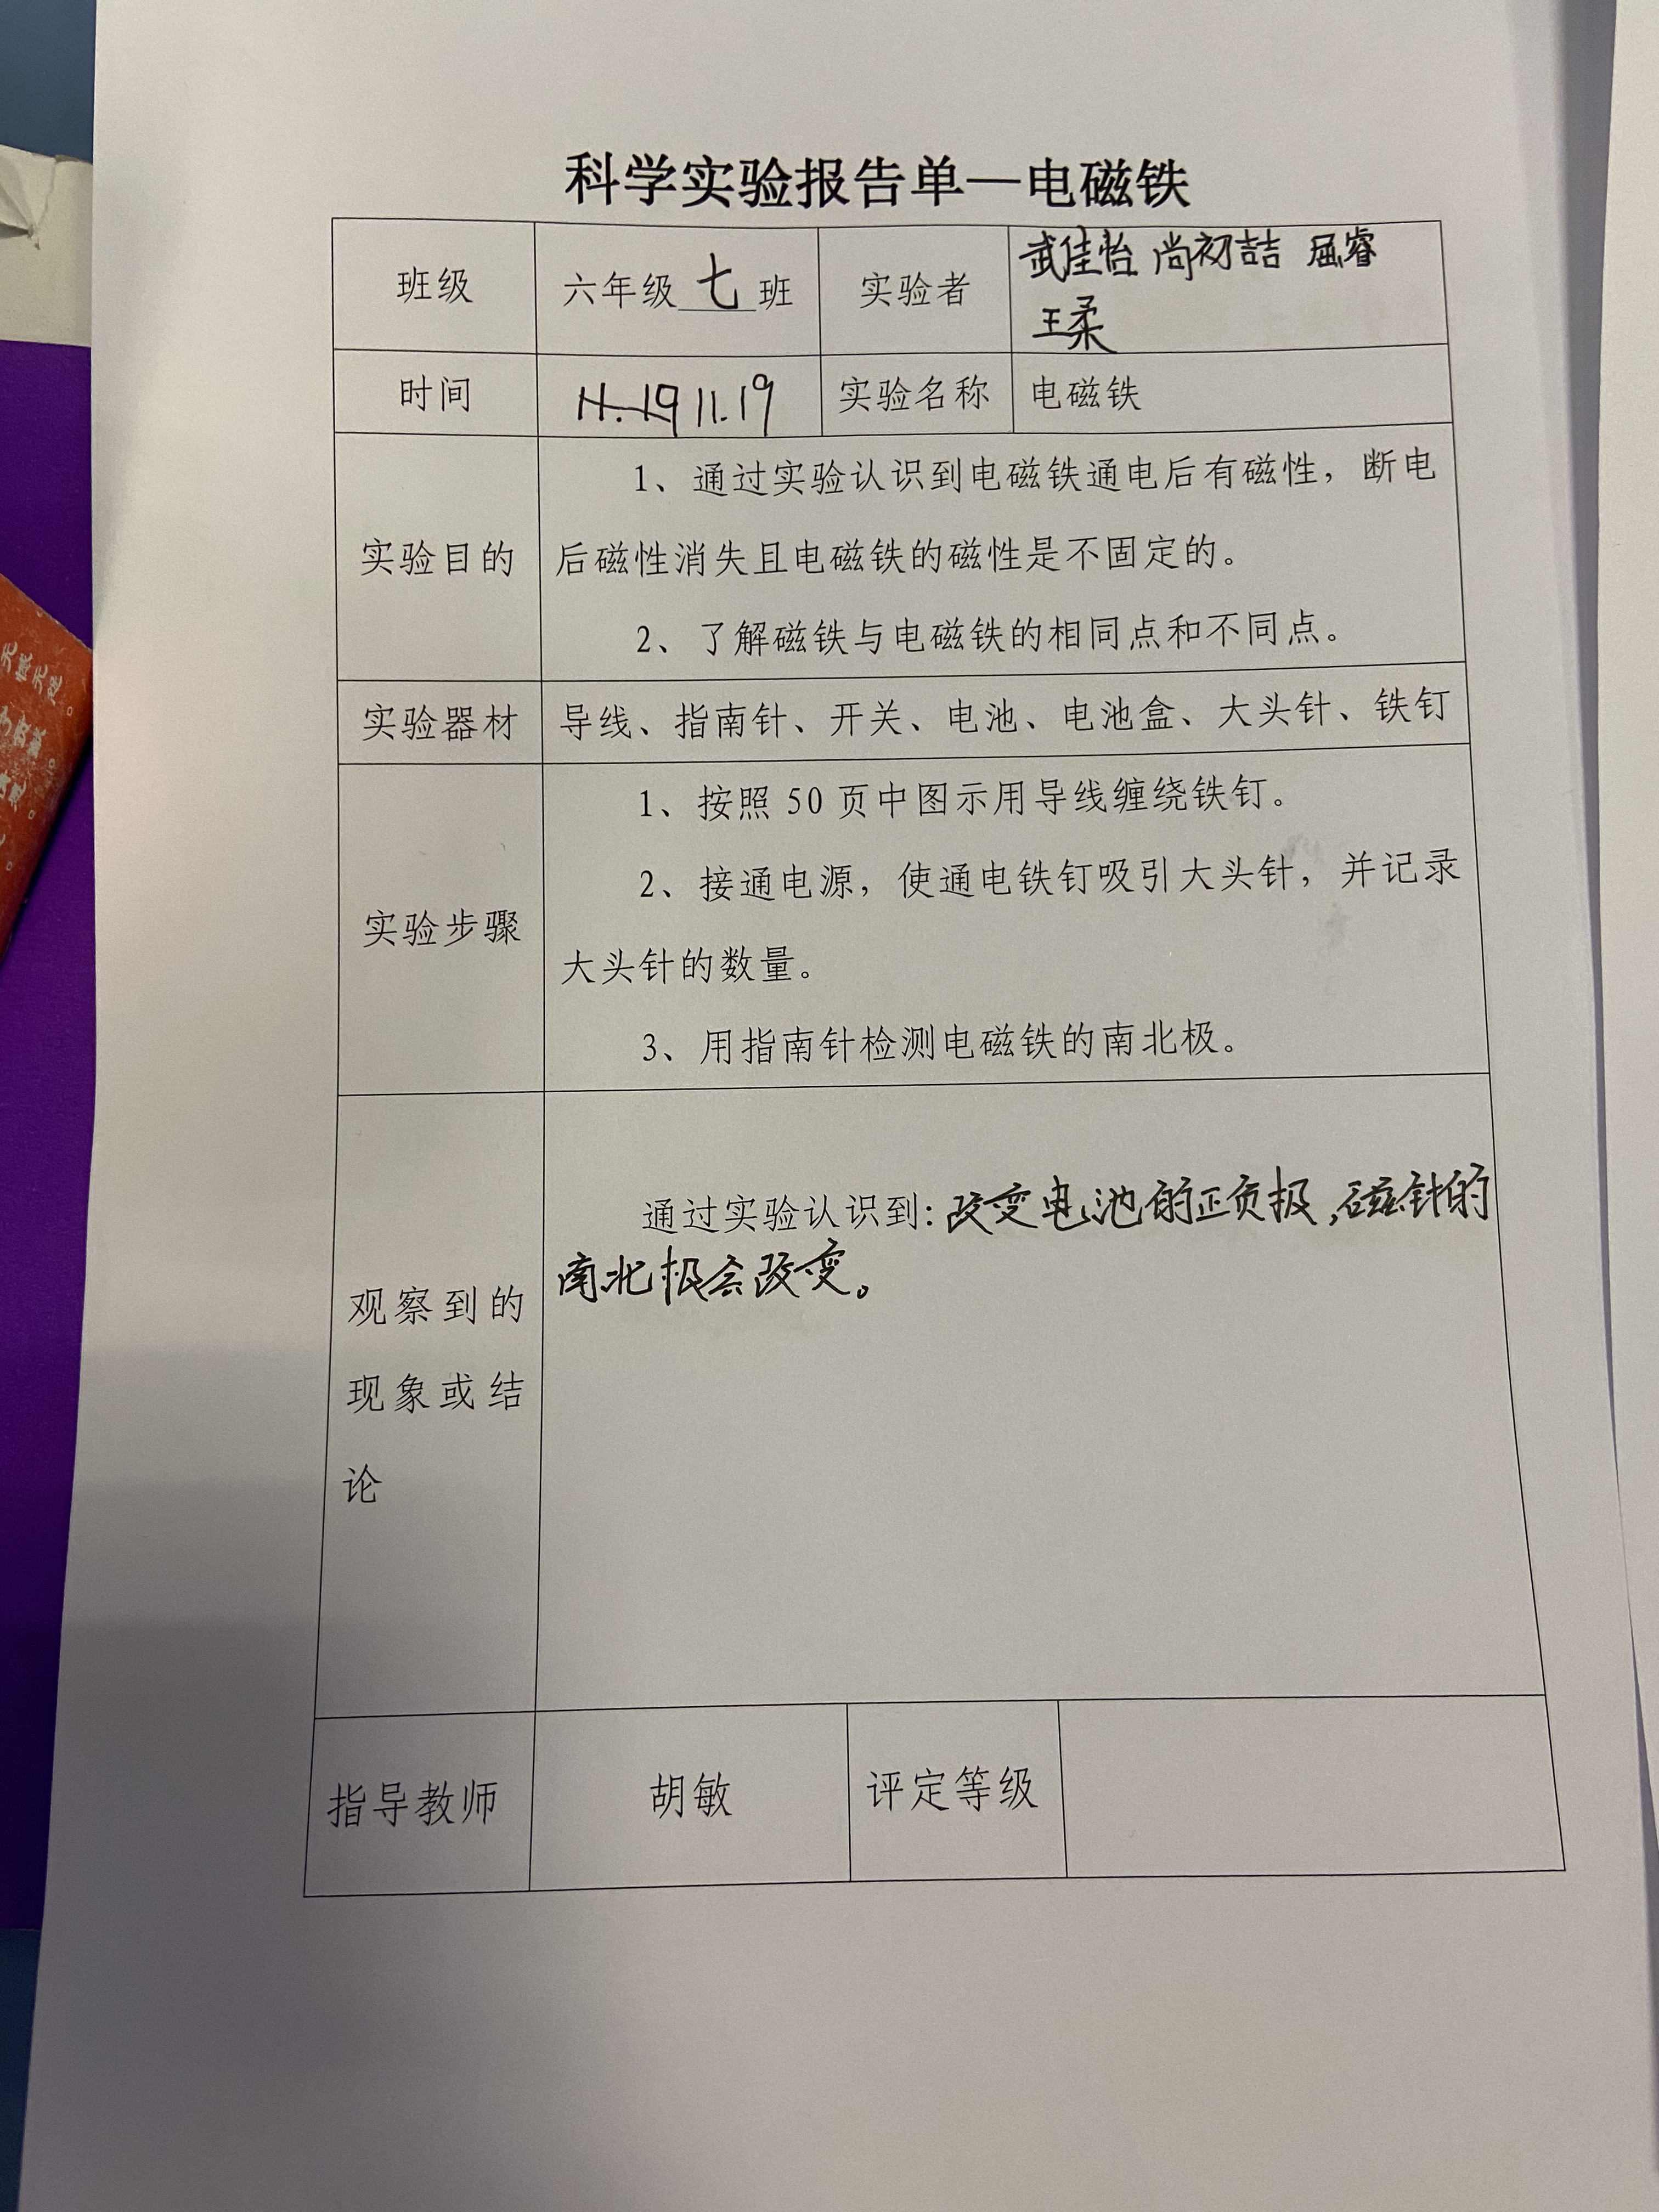 科学实验报告单—电磁铁
班级 六年级 七 班 实验者 武佳怡 尚初喆 屈睿
王柔
时间 11.19 11.19 实验名称 电磁铁
实验目的
1、通过实验认识到电磁铁通电后有磁性，断电
后磁性消失且电磁铁的磁性是不固定的。
2、了解磁铁与电磁铁的相同点和不同点。
实验器材 导线、指南针、开关、电池、电池盒、大头针、铁钉
实验步骤
1、按照 50 页中图示用导线缠绕铁钉。
2、接通电源，使通电铁钉吸引大头针，并记录
大头针的数量。
3、用指南针检测电磁铁的南北极。
观察到的
现象或结
论
通过实验认识到：改变电池的正负极，磁针的
南北极会改变。
指导教师 胡敏 评定等级